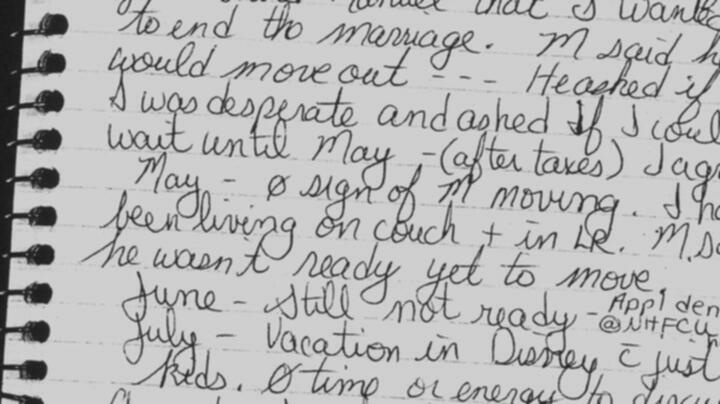 that I wante
to end tho marriage. M said h
would move out --- He asked if
I was desperate and asked if I coul
wait until May -(after taxes) I agr
May - Ø sign of M moving. I ha
been living on couch + in LR. M. sa
he wasn't ready yet to move.
June - still not ready - Appl den
@NHFCU
July - Vacation in Disney c̄ just
kids. Ø time or energy to discu